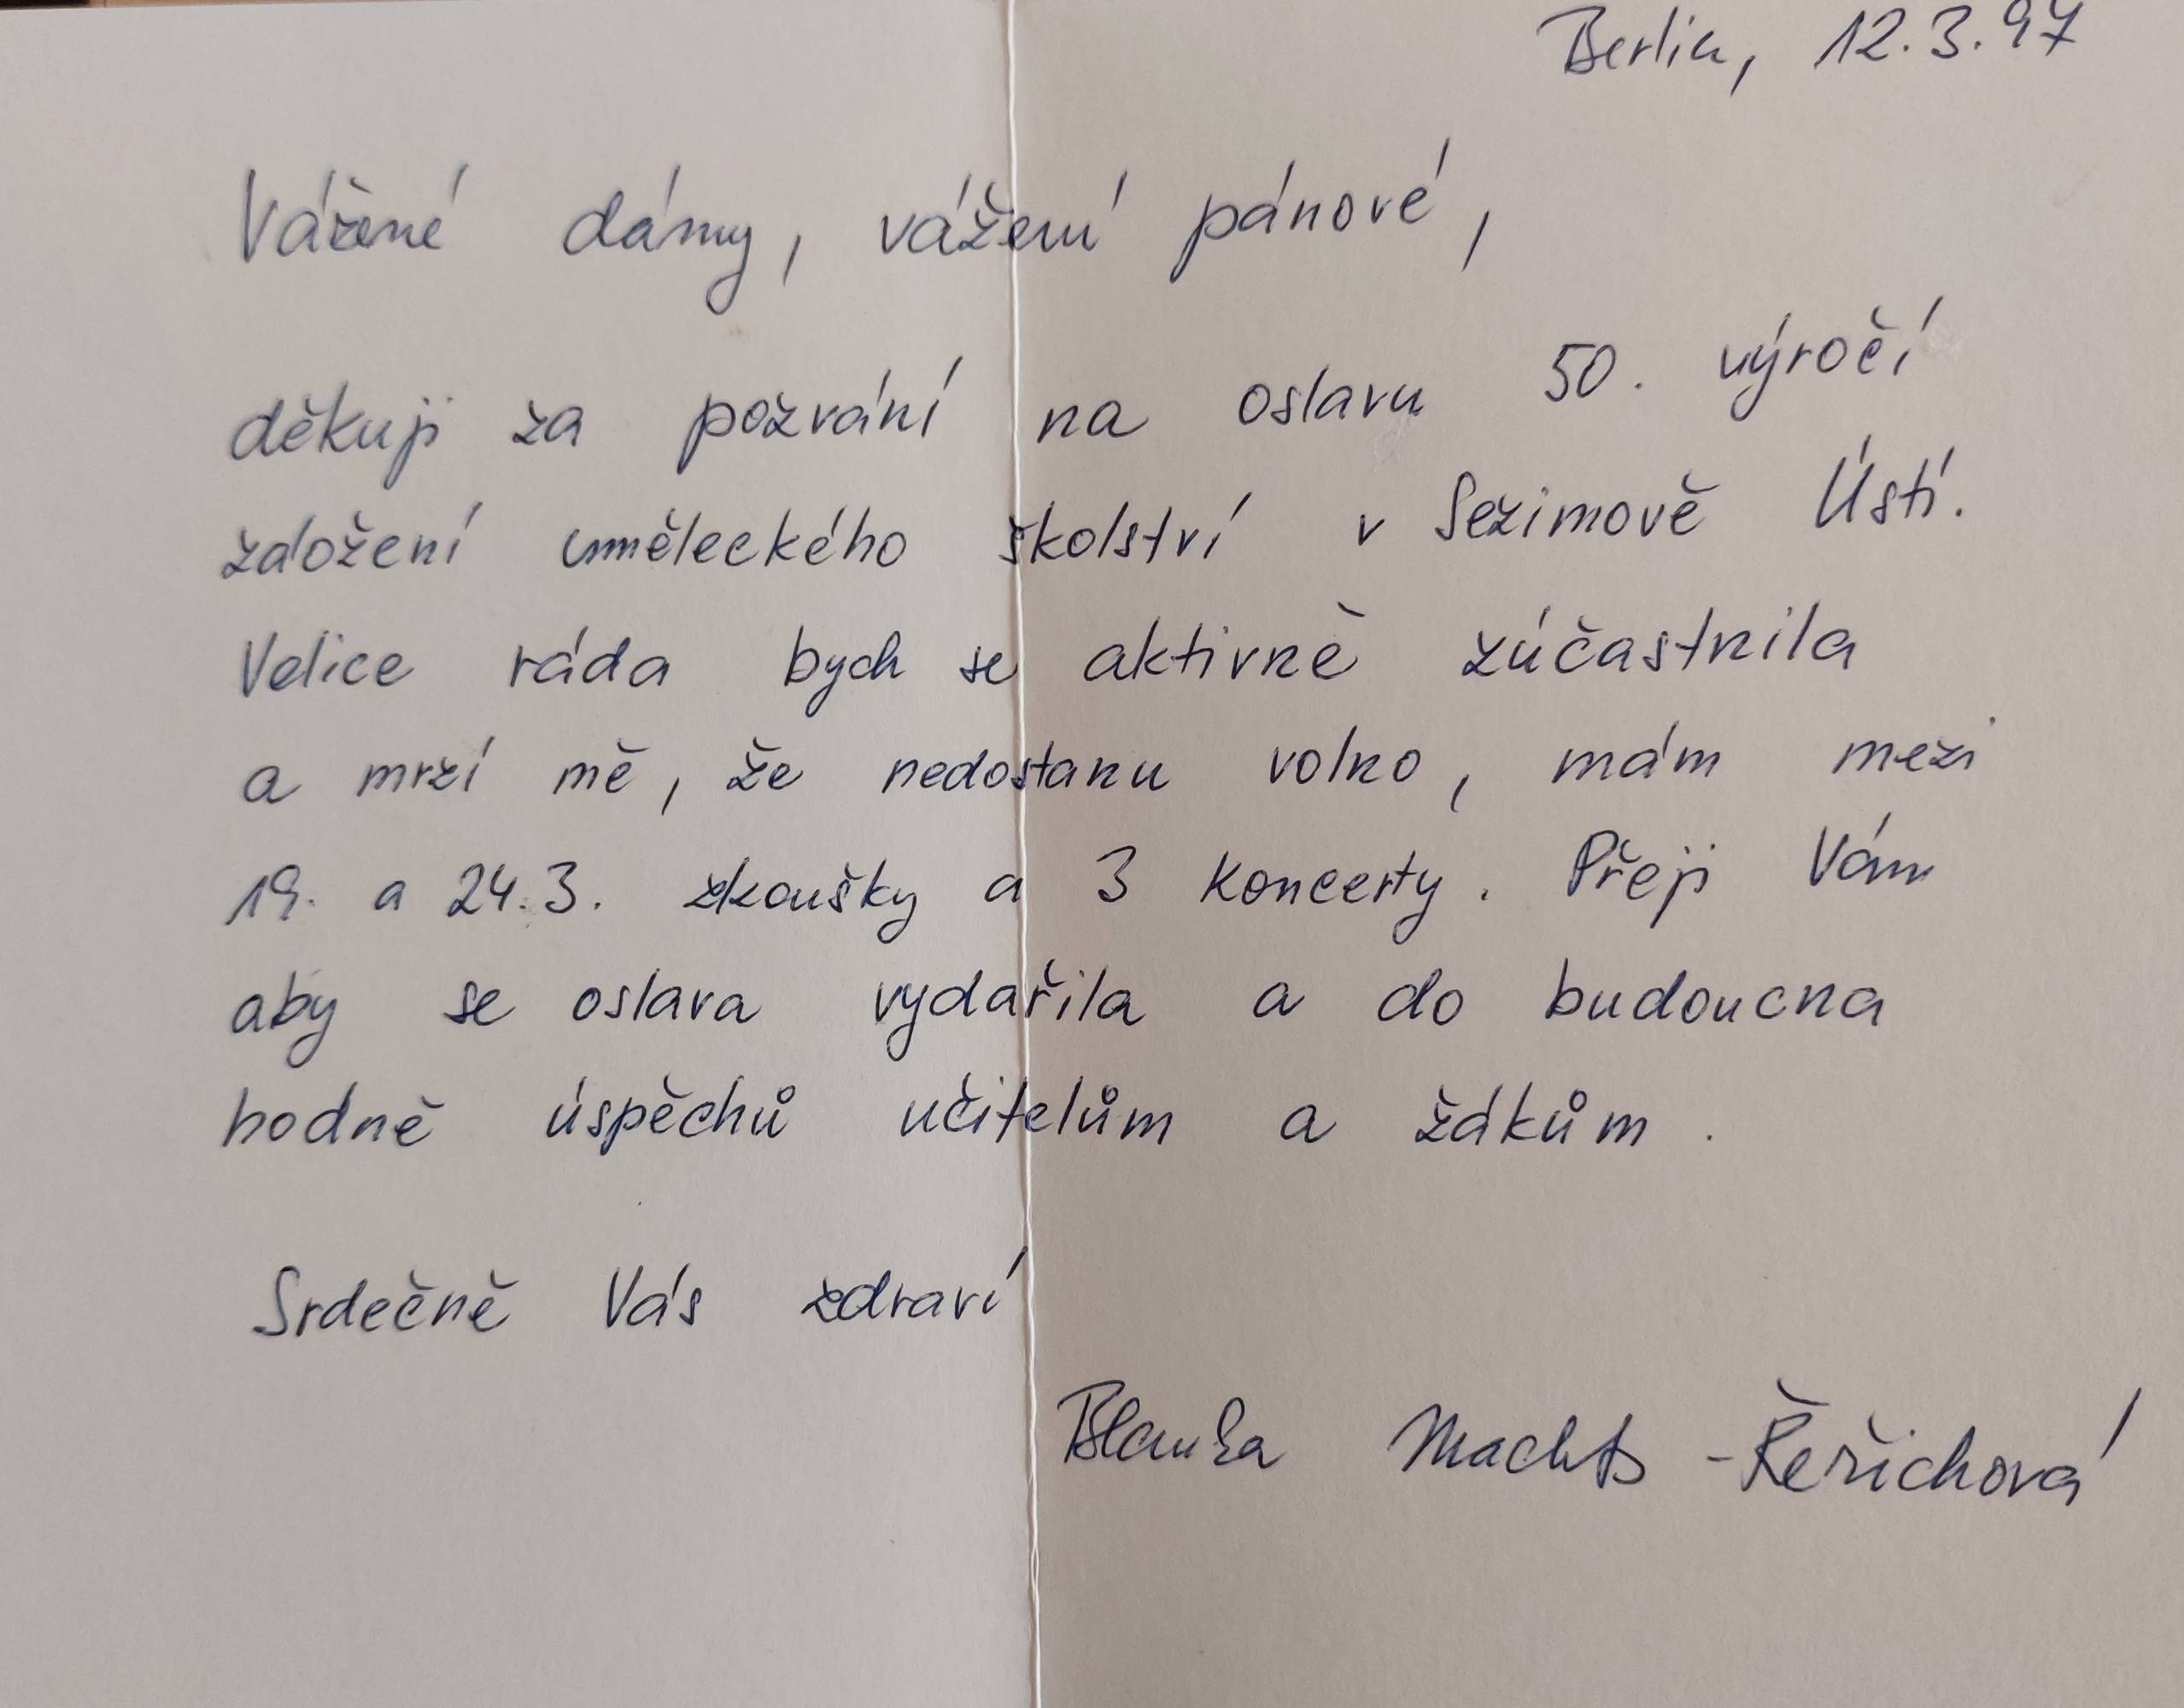 Berlin, 12.3.97
Vážené dámy, vážení pánové,
děkuji za pozvání na oslavu 50. výročí
založení uměleckého školství v Sezimově Ústí.
Velice ráda bych se aktivně zúčastnila
a mrzí mě, že nedostanu volno, mám mezi
19. a 24.3. zkoušky a 3 koncerty. Přeji Vám
aby se oslava vydařila a do budoucna
hodně úspěchů učitelům a žákům.
Srdečně Vás zdraví
Blanka Machts-Řeřichová